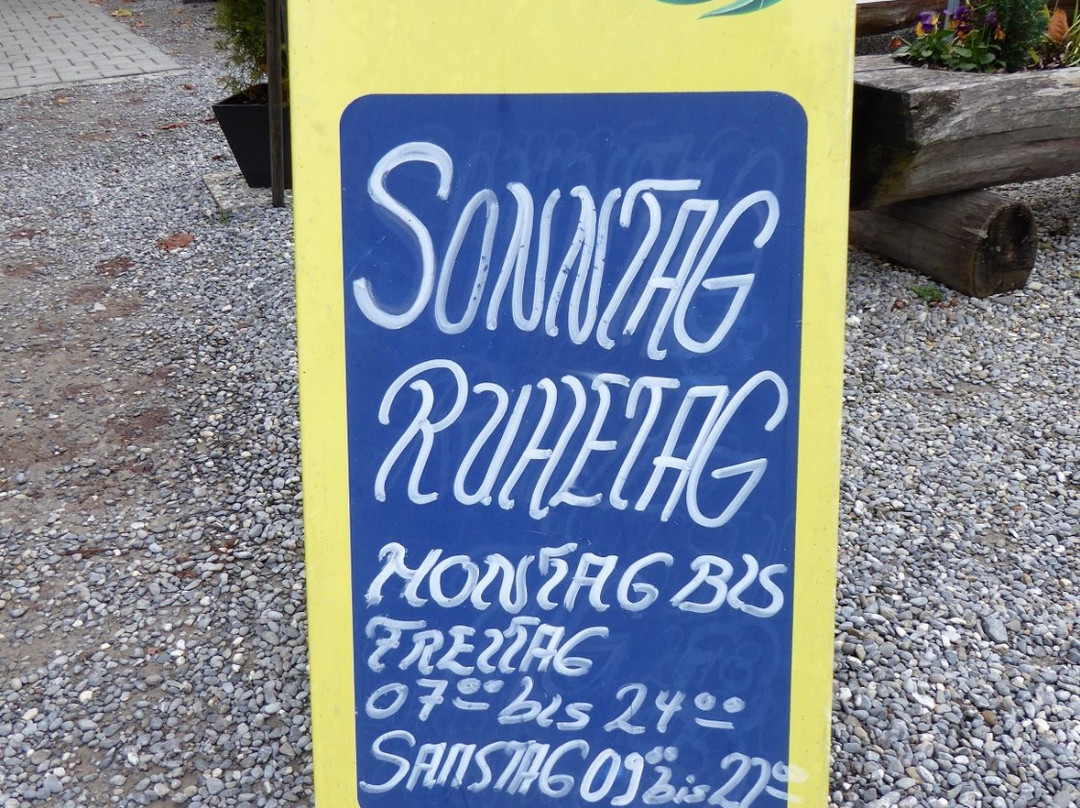 SONNTAG
RUHETAG
MONTAG BIS
FREITAG
07⁰⁰ bis 24⁰⁰
SAMSTAG 09⁰⁰ bis